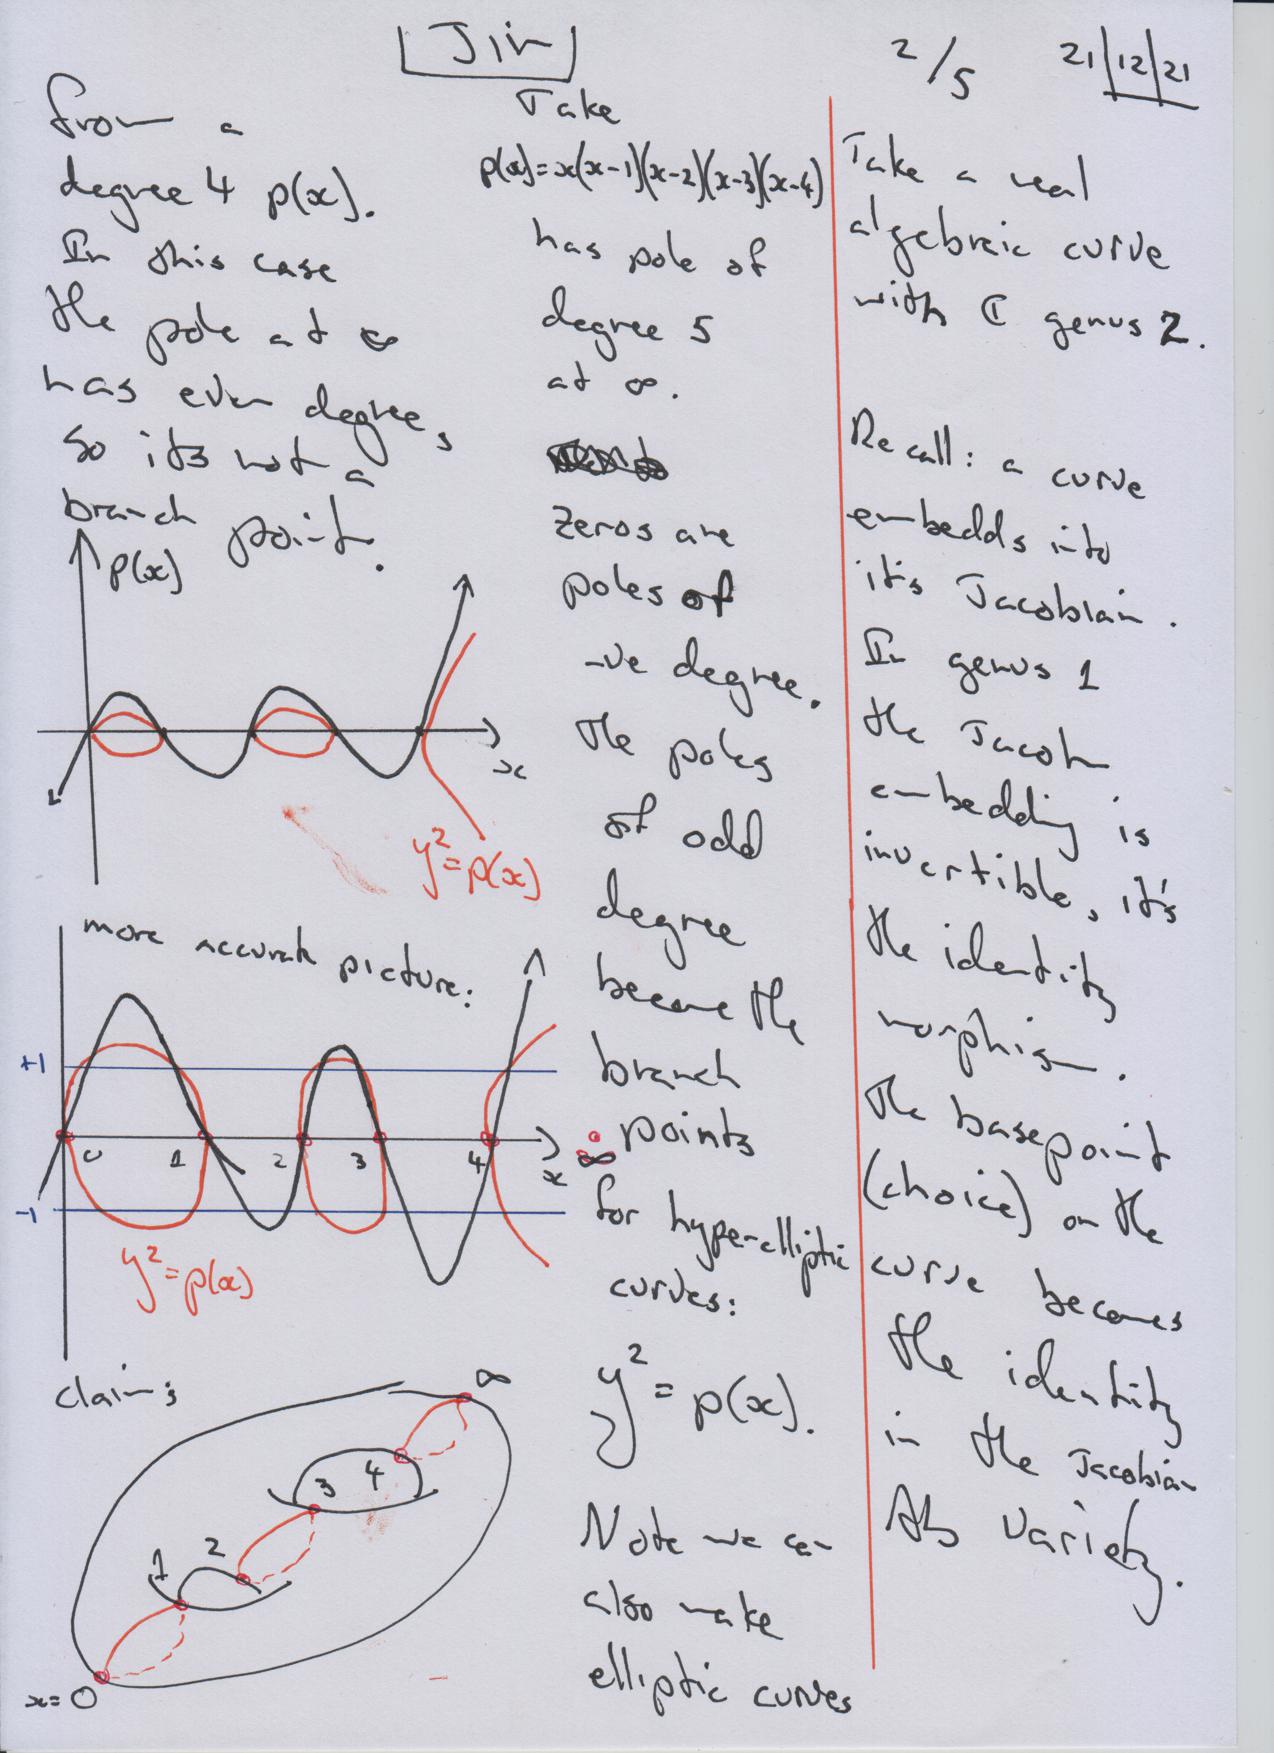 Jin
2/5
21/12/21
From a
degree 4 p(x).
In this case
the pole at ∞
has even degree,
so its not a
branch point.
p(x)
x
y²=p(x)
more accurate picture:
+1
0 1 2 3 4 x ∞
-1
y²=p(x)
claim:
∞
3 4
1 2
x=0
Take
p(x)=x(x-1)(x-2)(x-3)(x-4)
has pole of
degree 5
at ∞.
zeros are
poles of
-ve degree.
The poles
of odd
degree
become the
branch
points
for hyperelliptic
curves:
y² = p(x).
Note we can
also make
elliptic curves
Take a real
algebraic curve
with ℂ genus 2.
Recall: a curve
embedds into
it's Jacobian.
In genus 1
the Jacob
embedding is
invertible, it's
the identity
morphism.
The basepoint
(choice) on the
curve becomes
the identity
in the Jacobian
Ab variety.